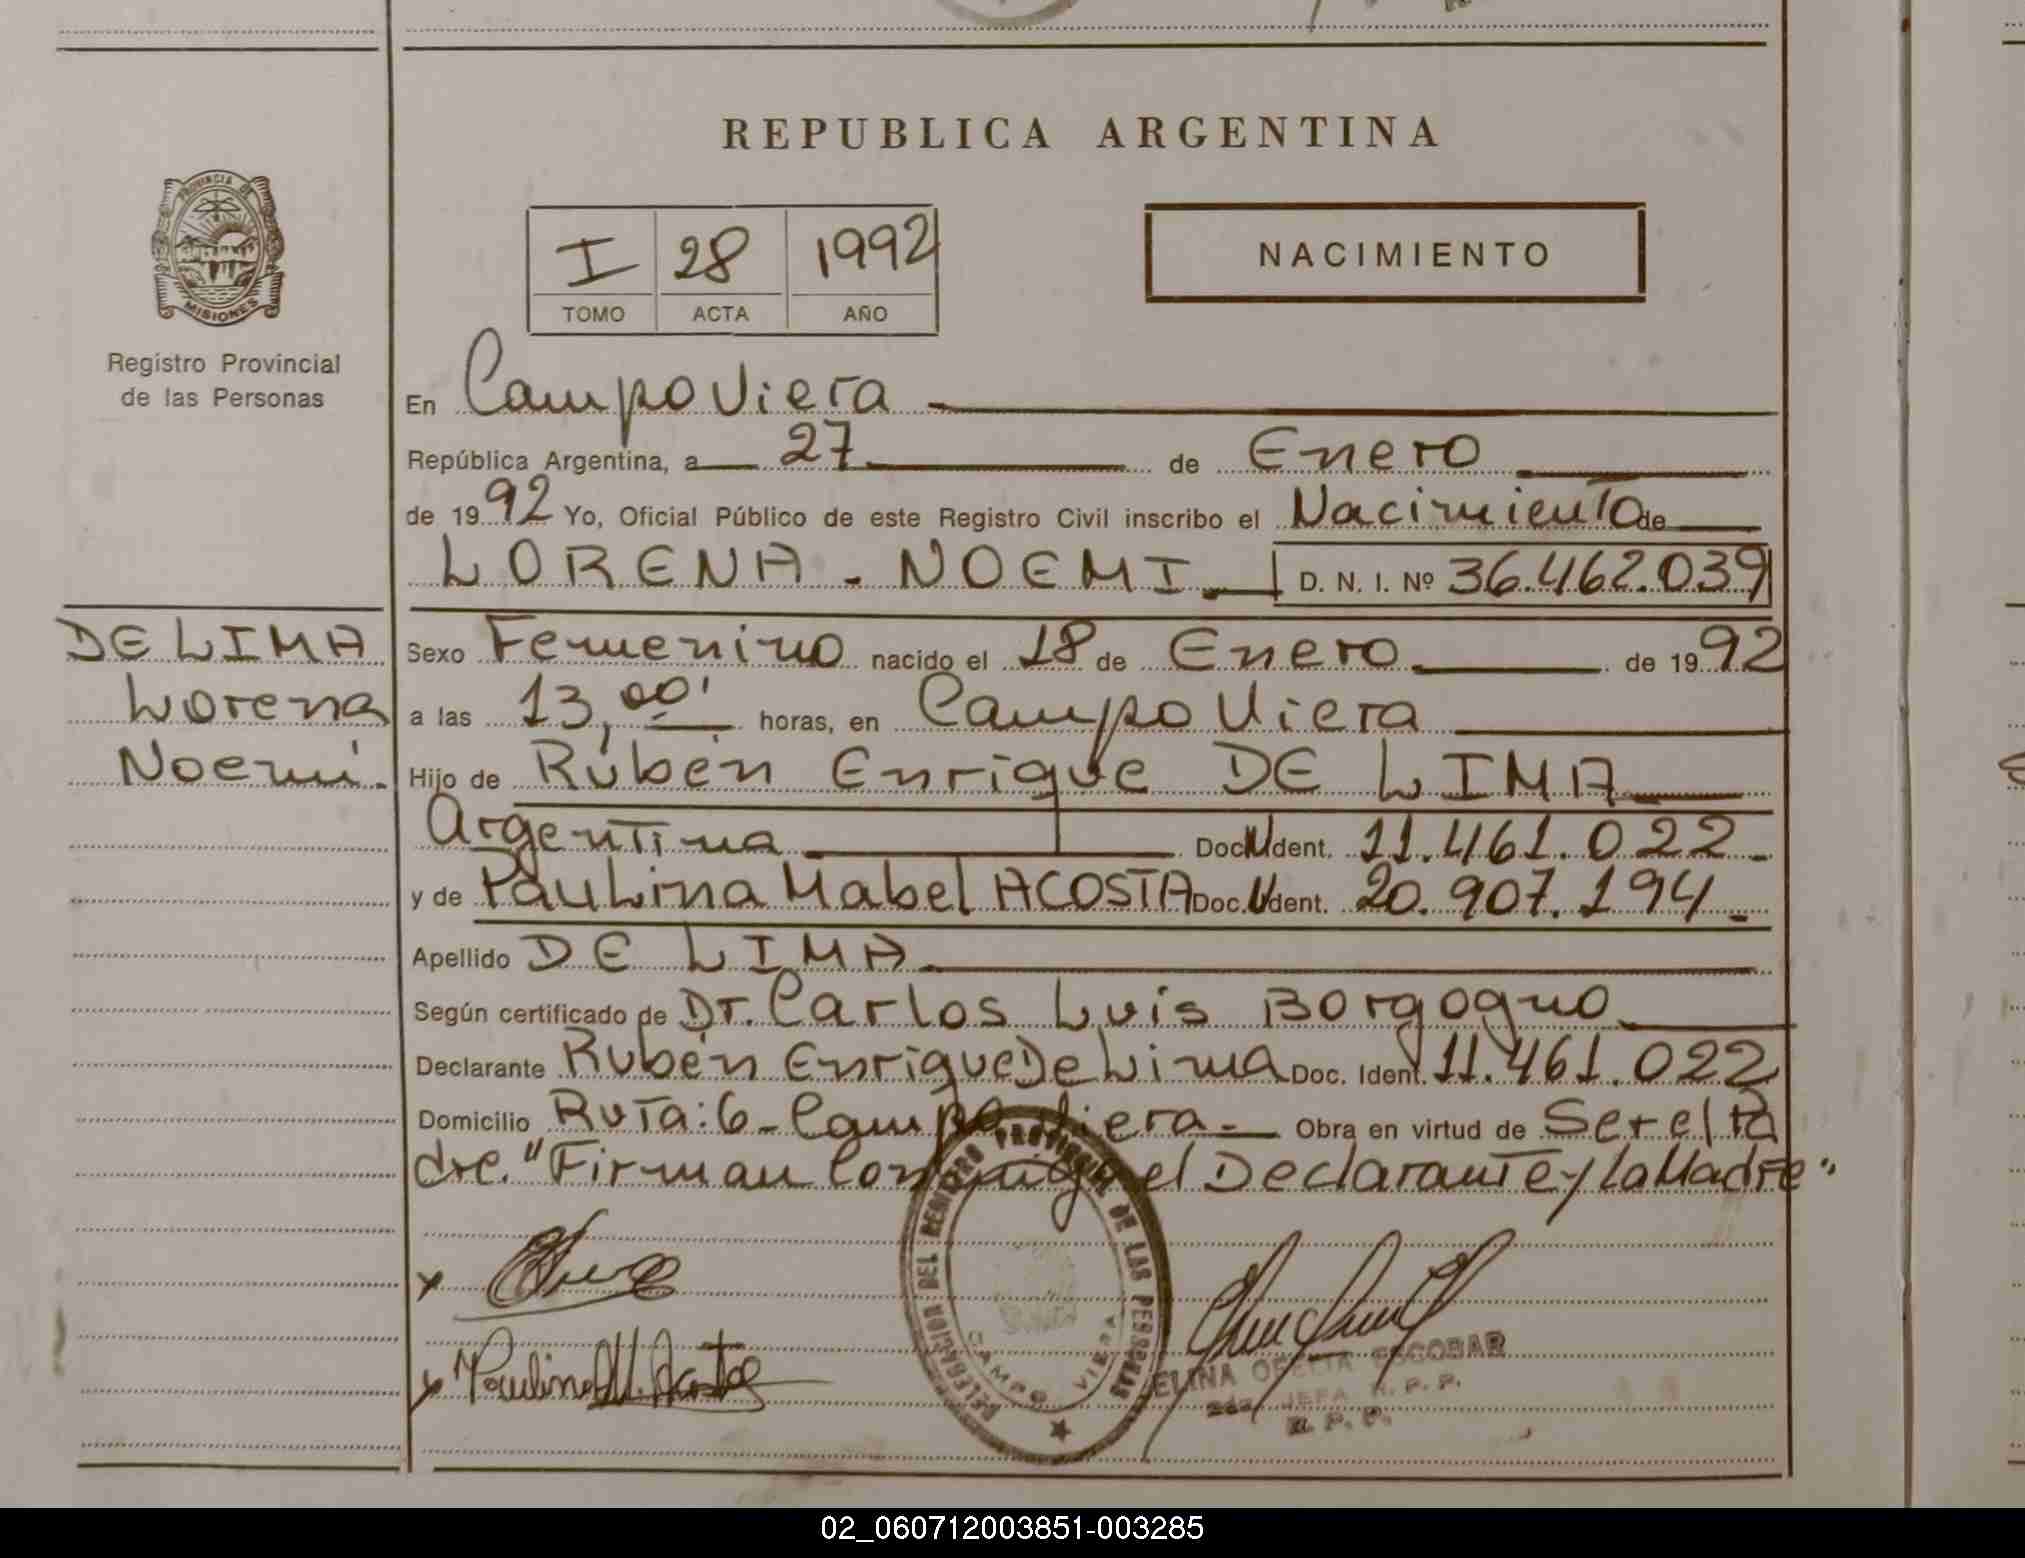 REPUBLICA ARGENTINA
PROVINCIA DE
MISIONES
Registro Provincial
de las Personas
I 28 1992
TOMO ACTA AÑO
NACIMIENTO
En Campo Viera
República Argentina, a 27 de Enero
de 1992 Yo, Oficial Público de este Registro Civil inscribo el Nacimiento de
LORENA - NOEMI D. N. I. Nº 36.462.039
DE LIMA
Lorena
Noemí.
Sexo Femenino nacido el 18 de Enero de 1992
a las 13,00' horas, en Campo Viera
Hijo de Rubén Enrique DE LIMA
Argentina Doc. Ident. 11.461.022.-
y de Paulina Mabel ACOSTA Doc. Ident. 20.907.194.-
Apellido DE LIMA
Según certificado de Dr. Carlos Luis Borgogno
Declarante Rubén Enrique De Lima Doc. Ident. 11.461.022
Domicilio Ruta: 6 - Campo Viera.- Obra en virtud de Ser el Pa
dre. "Firman Conmigo el Declarante y La Madre"
DELEGACION DEL REGISTRO PROVINCIAL DE LAS PERSONAS
CAMPO VIERA
x
x Paulina M. Acosta
OFELIA ESCOBAR
JEFA R. P. P.
R. P. P.
02_060712003851-003285